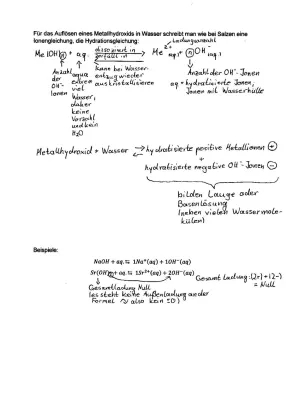 Für das Auflösen eines Metallhydroxids in Wasser schreibt man wie bei Salzen eine
Ionengleichung, die Hydrationsgleichung:
Ladungsanzahl
Me(OH)n + aq. dissoziiert in Me n+ aq. + n OH⁻ aq.
zerfällt in
Anzahl der OH⁻-Ionen
aqua extrem viel Wasser, daher keine Vorzahl und kein H₂O
kann bei Wasserentzug wieder auskristallisieren
Anzahl der OH⁻-Ionen
aq = hydratisierte Ionen;
Ionen mit Wasserhülle
Metallhydroxid + Wasser → hydratisierte positive Metallionen ⊕
+
hydratisierte negative OH⁻-Ionen ⊖
bilden Lauge oder
Basenlösung
(neben vielen Wassermole-
külen)
Beispiele:
NaOH + aq. ⇆ 1Na⁺(aq) + 1OH⁻(aq)
Sr(OH)₂ + aq. ⇆ 1Sr²⁺(aq) + 2OH⁻(aq)
Gesamtladung: (2+) + (2-)
= Null
Gesamtladung Null
(es steht keine Außenladung an der
Formel ≈ also kein ⊕!)